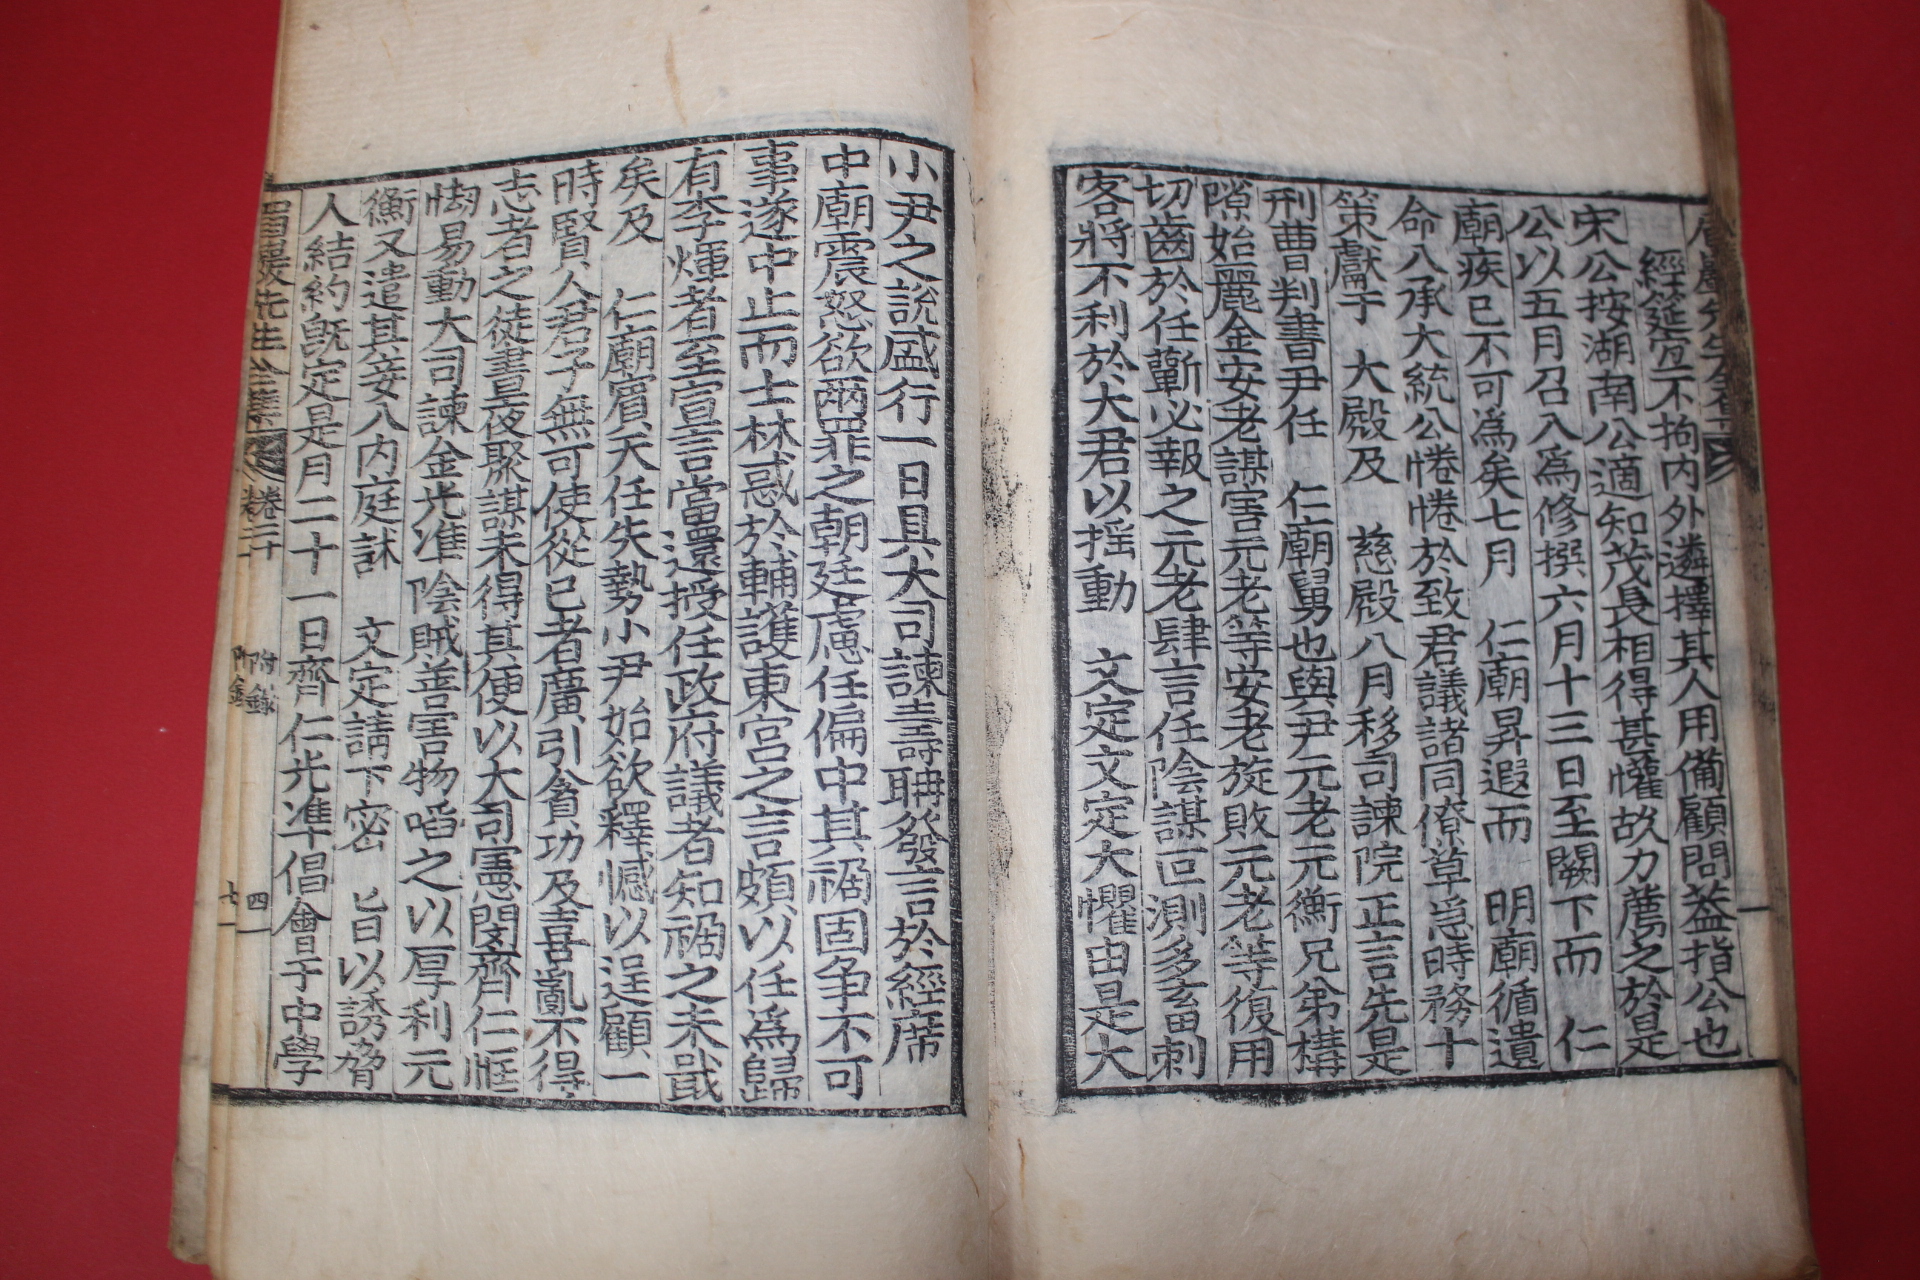 經筵宜不拘內外遴擇其人用備顧問葢指公也
宋公按湖南公適知茂長相得甚懽故力薦之於是
公以五月召入爲修撰六月十三日至闕下而 仁
廟疾已不可爲矣七月 仁廟昇遐而 明廟循遺
命入承大統公惓惓於致君議諸同僚草急時務十
策獻于 大殿及 慈殿八月移司諫院正言先是
刑曹判書尹任 仁廟舅也與尹元老元衡兄弟構
隙始麗金安老謀害元老等安老旋敗元老等復用
切齒於任蘄必報之元老肆言任陰謀叵測多畜刺
客將不利於大君以搖動 文定文定大懼由是大
小尹之說盛行一日具大司諫壽聃發言於經席
中廟震怒欲兩罪之朝廷慮任偏中其禍固争不可
事遂中止而士林惑於輔護東宮之言頗以任爲歸
有李煇者至宣言當還授任政府議者知禍之未戢
矣及 仁廟賓天任失勢小尹始欲釋憾以逞顧一
時賢人君子無可使從已者廣引貪功及喜亂不得
志者之徒晝夜聚謀未得其便以大司憲閔齊仁恇
㤼易動大司諫金光準陰賊善害物啗之以厚利元
衡又遣其妾入內庭訹 文定請下密 旨以誘脅
人結約旣定是月二十一日齊仁光準倡會于中學
眉巖先生全集 卷二十
附錄
四一